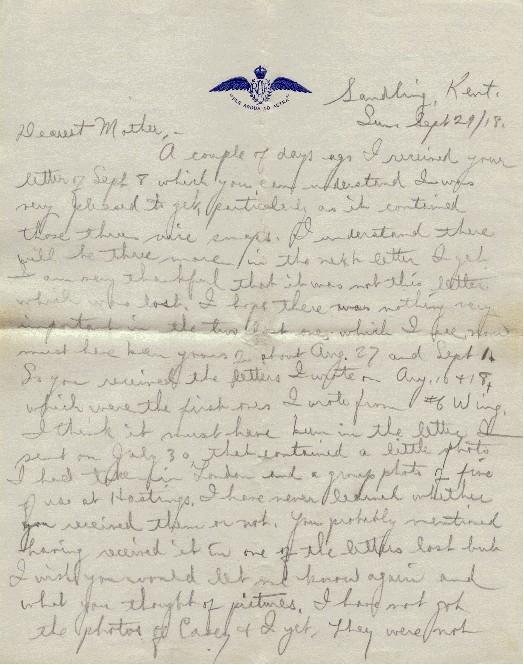 RFC
PER ARDUA AD ASTRA
Sandling, Kent.
Sun Sept 29/18.
Dearest Mother,-
A couple of days ago I received your
letter of Sept 8 which you can understand I was
very pleased to get, particularly as it contained
those three nice snaps. I understand there
will be three more in the next letter I get.
I am very thankful that it was not this letter
which was lost. I hope there was nothing very
important in the two lost ones which I see now
must have been yours of about Aug. 27 and Sept 1.
So you received the letters I wrote on Aug. 16 & 18,
which were the first ones I wrote from #6 Wing.
I think it must have been in the letter I
sent on July 30 that contained a little photo
I had taken in London and a group photo of five
of us at Hastings. I have never learned whether
you received them or not. You probably mentioned
having received it in one of the letters lost but
I wish you would let me know again and
what you thought of pictures. I have not got
the photos of Casey & I yet. They were not